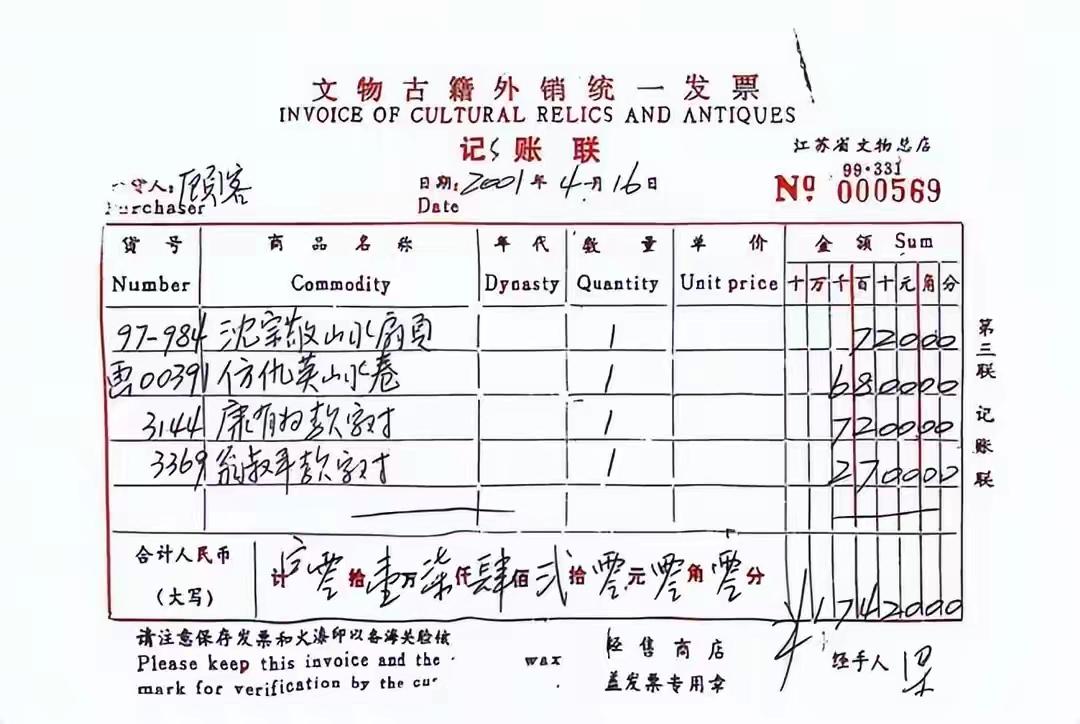 文物古籍外销统一发票
INVOICE OF CULTURAL RELICS AND ANTIQUES
记账联
江苏省文物总店
99·331
人: 顾客
Purchaser
日期: 2001年4月16日
Date
Nº 000569
货号 商品名称 年代 数量 单价 金额 Sum
Number Commodity Dynasty Quantity Unit price 十万千百十元角分
97-984 沈宗敬山水扇页 1 72000
画00391 仿仇英山水卷 1 680000
3144 康有为款字对 1 720000
3369 翁叔平款字对 1 270000
第三联 记账联
合计人民币
(大写)
计 零拾壹万柒仟肆佰弍拾零元零角零分 ¥1742000
请注意保存发票和火漆印以备海关验核
Please keep this invoice and the wax
mark for verification by the cu
经售商店
盖发票专用章
经手人 梁